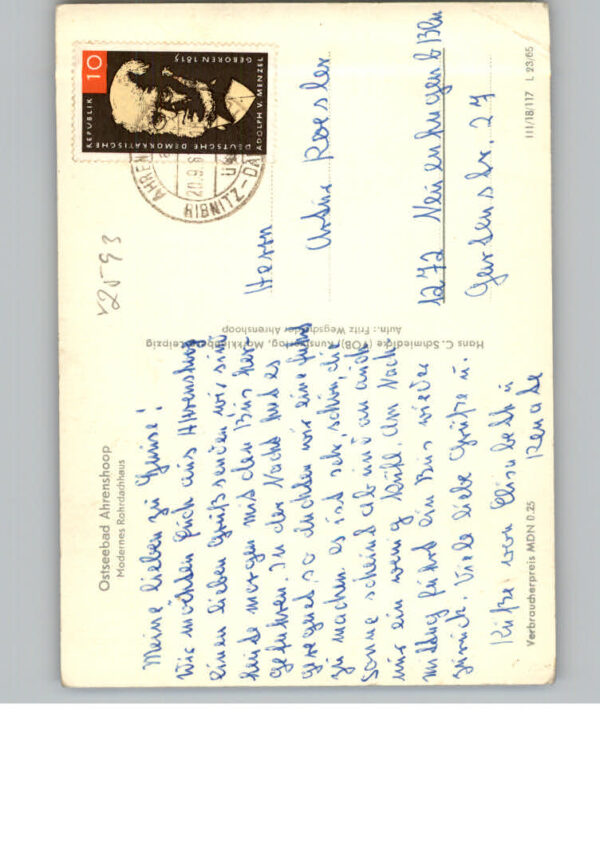 Ostseebad Ahrenshoop
Modernes Rohrdachhaus
Meine lieben zu Hause!
Wir möchten Euch aus Ahrenshoop
einen lieben Gruß senden wir sind
heute morgen mit den Bus her-
gefahren. In der Nacht hat es
geregnet so dachten wir eine fahrt
zu machen. es ist sehr schön, die
Sonne scheind ab und an auch
nur ein wenig kühl. Am Nach
mittag fährt ein Bus wieder
zurück. Viele liebe Grüße u.
Küße von Elisabeth u
Renate
Verbraucherpreis MDN 0.25
Hans C. Schmiedicke (VOB) Kunstverlag, Markkleeberg-Leipzig
Aufn.: Fritz Wegscheider Ahrenshoop
DEUTSCHE DEMOKRATISCHE
REPUBLIK 10
ADOLPH V. MENZEL
GEBOREN 1815
AHREN
20.9.6
RIBNITZ-DA
2593
Herrn
Roesler
1272 Neuenhagen b Bln
Gartenstr. 27
III/18/117 L 23/65